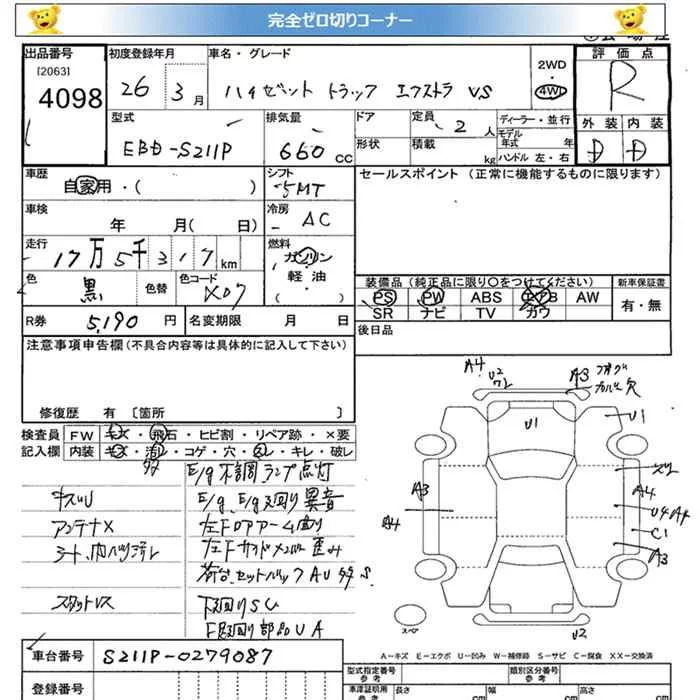 完全ゼロ切りコーナー
出品番号
[2063]
4098
初度登録年月
26 3月
車名・グレード
ハイゼット トラック エクストラ VS
2WD・4WD
評価点
R
型式
EBD-S211P
排気量
660 CC
ドア
形状
定員
2人
積載
kg
ディーラー・並行
モデル年式 年
ハンドル 左・右
外装 内装
D D
車歴
自家用・( )
シフト
5MT
セールスポイント(正常に機能するものに限ります)
車検
年 月( 日)
冷房
AC
走行
17万5千317km
燃料
ガソリン
軽・油
( )
色
黒
色替
色コード
X07
装備品(純正品に限り〇をつけてください)
新車保証書
PS PW ABS エアB AW
SR ナビ TV カワ
有・無
R券 5,190円
名変期限 月 日
後日品
注意事項申告欄(不具合内容等は具体的に記入して下さい)
修復歴 有〔箇所 〕
検査員 FW キズ・飛石・ヒビ割・リペア跡・×要
記入欄 内装 キズ・汚レ・コゲ・穴・スレ・キレ・破レ
E/g不調ランプ点灯
E/g、E/g廻り異音
アンテナX
下廻りSU
A4 U2 A3
U1 U1
A3 A4
A4 U4
C1
A3
スペア
U2
A-キズ E-エクボ U-凹み W-補修跡 S-サビ C-腐食 XX-交換済
車台番号 S211P-0279087
登録番号
型式指定番号
参考
類別区分番号
参考
車庫証明用
参考
長さ cm
幅 cm
高さ cm